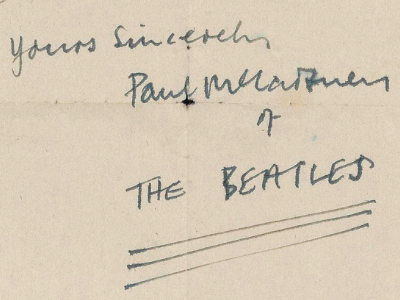 Yours Sincerely
Paul McCartney
of
THE BEATLES